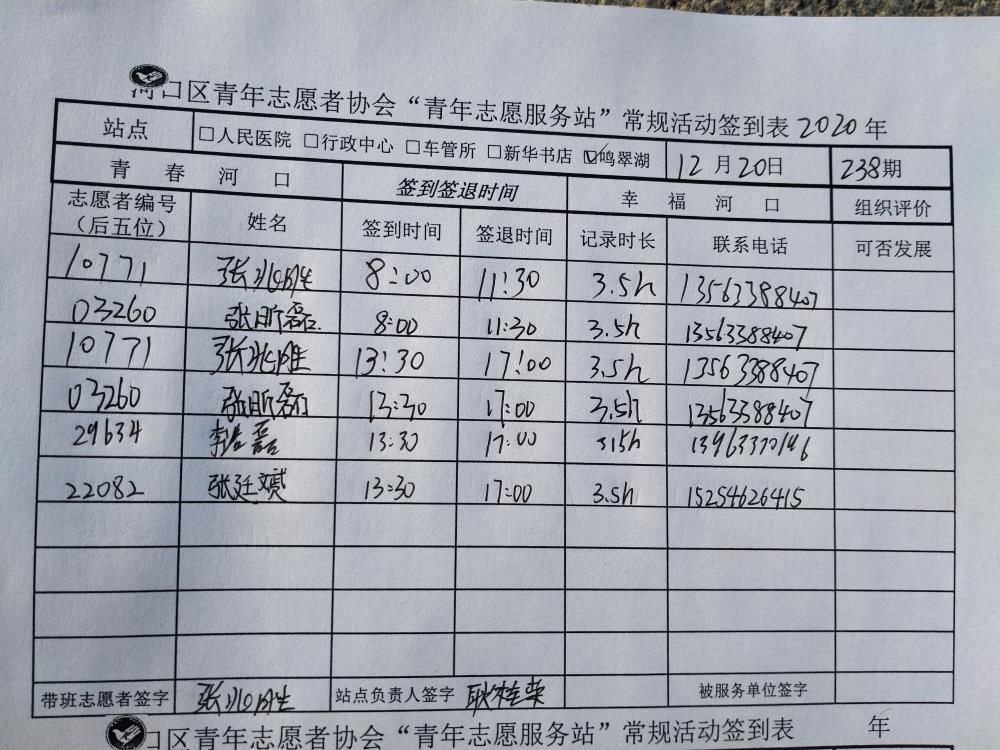 河口区青年志愿者协会“青年志愿服务站”常规活动签到表2020年
站点 □人民医院 □行政中心 □车管所 □新华书店 ☑鸣翠湖 12月20日 238期
青春河口 签到签退时间 幸福河口 组织评价
志愿者编号（后五位） 姓名 签到时间 签退时间 记录时长 联系电话 可否发展
10771 张兆胜 8:00 11:30 3.5h 13563388407
03260 张昕磊 8:00 11:30 3.5h 13563388407
10771 张兆胜 13:30 17:00 3.5h 13563388407
03260 张昕磊 13:30 17:00 3.5h 13563388407
29634 磊 13:30 17:00 3.5h
22082 张廷 13:30 17:00 3.5h 15254626415
带班志愿者签字 张兆胜 站点负责人签字 耿桂荣 被服务单位签字
口区青年志愿者协会“青年志愿服务站”常规活动签到表 年